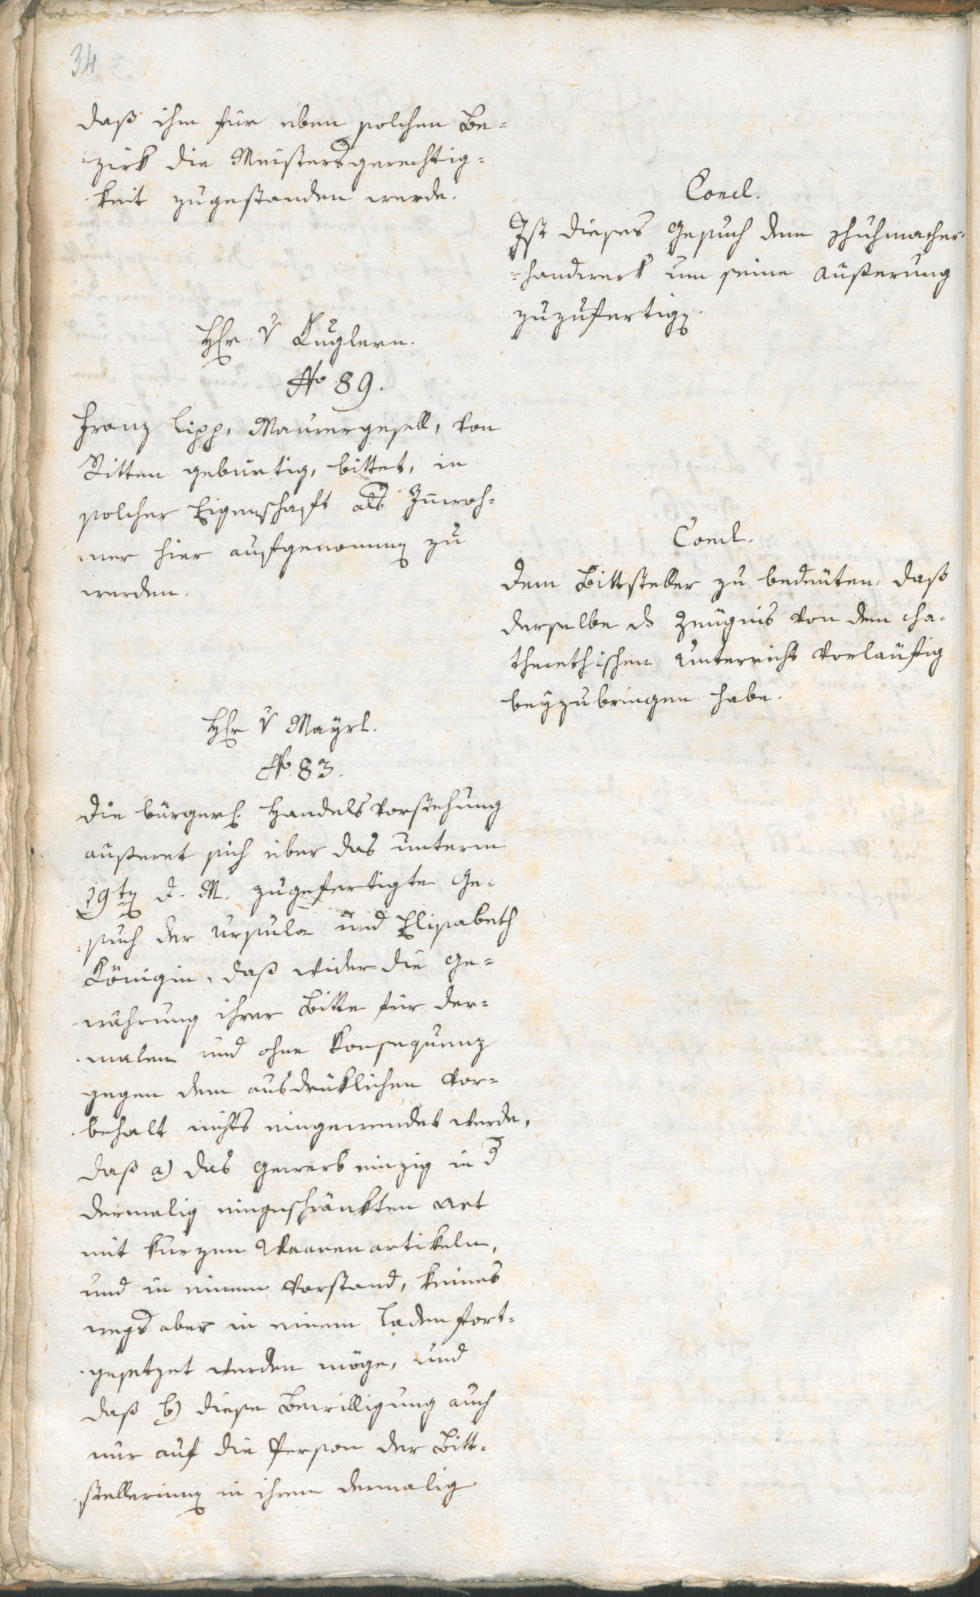 34
daß ihm für eben solchen Be-
zirk die Meistersgerechtig-
keit zugestanden werde.
Concl.
Ist dieses Gesuch dem Schuhmacher-
handwerk um seine Äußerung
zuzufertig.
Hr. v Kuglern.
No 89.
Franz Lipp, Maurergesell, von
Ritten gebürtig, bittet, in
solcher Eigenschaft als Inwoh-
ner hier aufgenomm zu
werden.
Concl.
Dem Bittsteller zu bedeuten, daß
derselbe ds Zeugnis von dem cha-
thecthischen Unterricht vorläufig
beyzubringen habe.
Hr v Mayrl.
No. 83.
Die bürgerl. Handels Vorstehung
äußeret sich über das unterm
19t d. M. zugefertigte Ge-
such der Ursula und Elisabeth
Königin, daß wider die Ge-
währung ihrer Bitte für der-
malen und ohne Konsequenz
gegen dem ausdrüklichen Vor-
behalt nichts eingewendet werde,
daß a) das Gewerb einzig in d
dermalig eingeschränkten Art
mit kurzen Waaren artikeln,
und in einem Vorstand, keines
wegs aber in einem Laden fort-
gesetzet werden möge, und
daß b) diese Bewilligung auch
nur auf die Person der Bitt-
stellerinn in ihrem dermalig